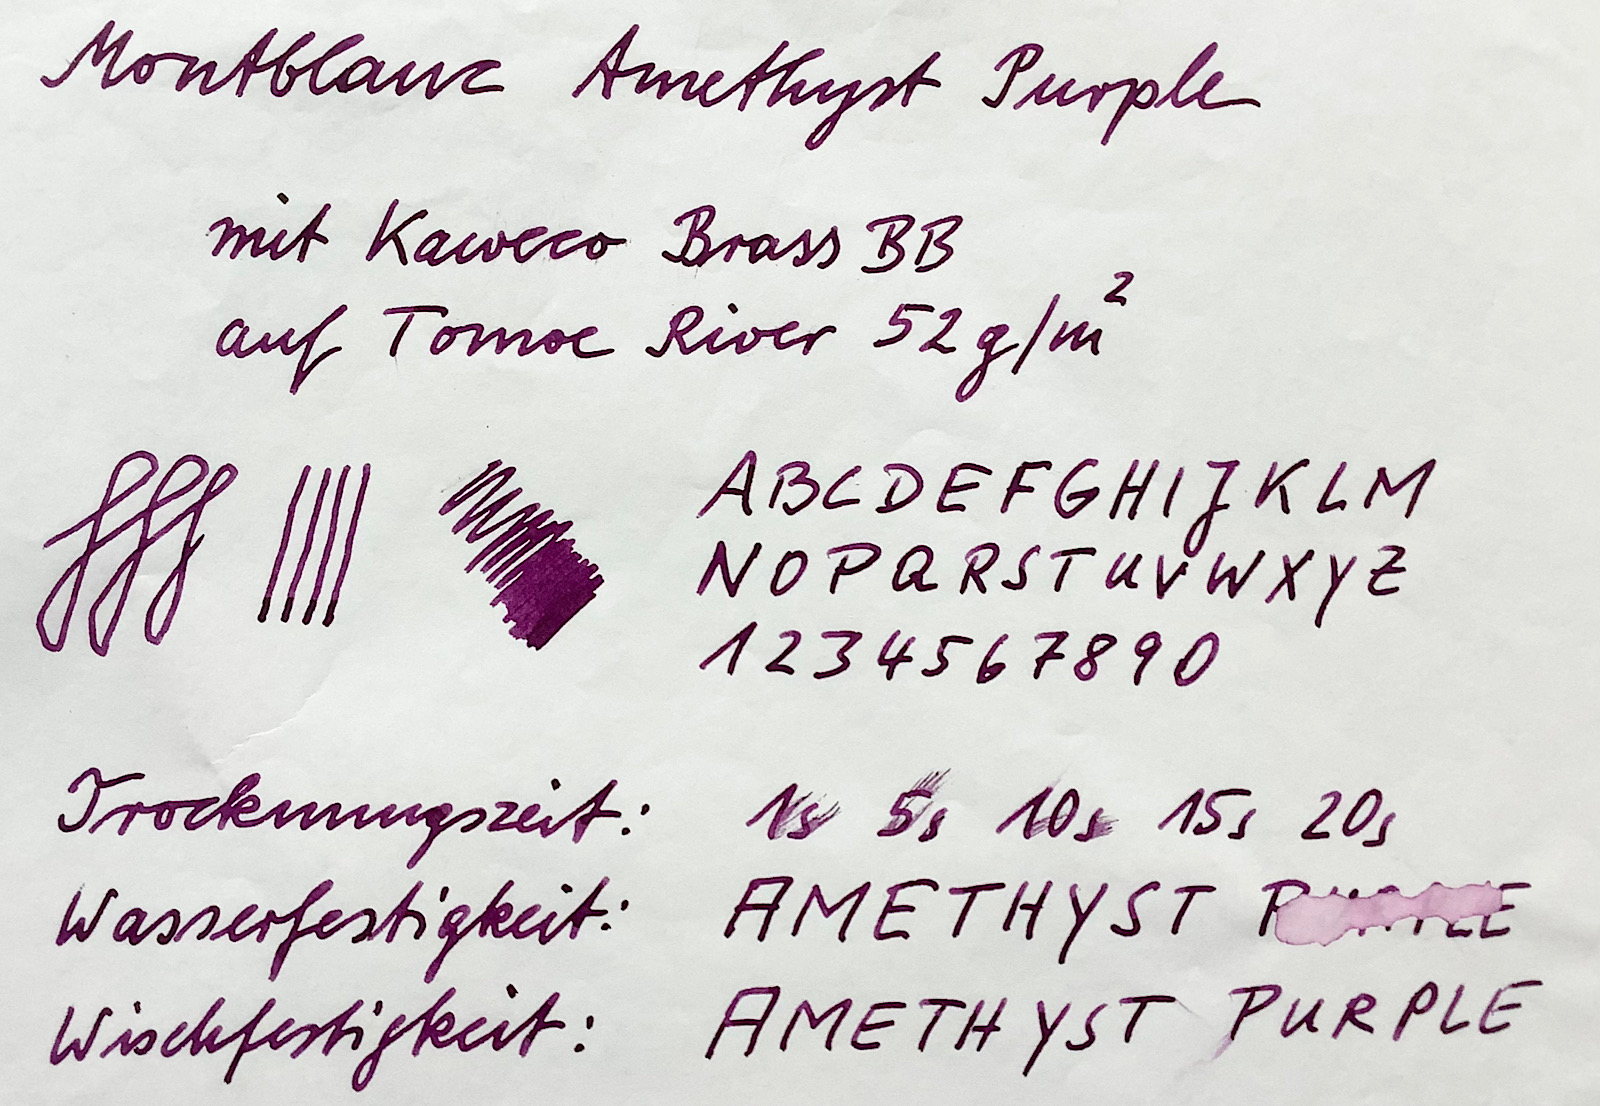 Montblanc Amethyst Purple
mit Kaweco Brass BB
auf Tomoe River 52 g/m²
fff
ABCDEFGHIJKLM
NOPQRSTUVWXYZ
1234567890
Trocknungszeit: 1s 5s 10s 15s 20s
Wasserfestigkeit: AMETHYST PURPLE
Wischfestigkeit: AMETHYST PURPLE